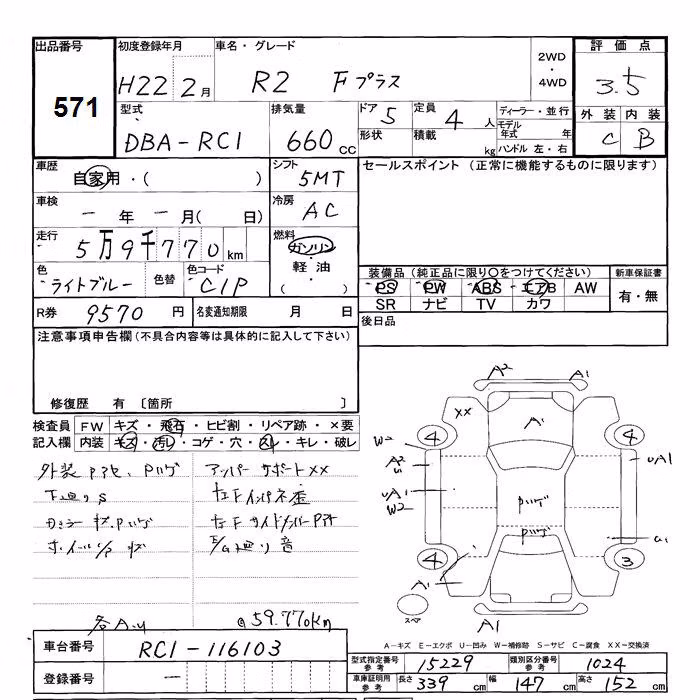 出品番号 初度登録年月 車名・グレード 2WD・4WD 評価点
571 H22 2月 R2 Fプラス 3.5
型式 排気量 ドア 5 定員 4人 ディーラー・並行 外装 内装
DBA-RC1 660cc 形状 積載 kg モデル年式 年 C B
ハンドル 左・右
車歴 自家用・( ) シフト 5MT セールスポイント (正常に機能するものに限ります)
車検 ー年 ー月( 日) 冷房 AC
走行 5万9千770km 燃料 ガソリン・軽油・( )
色 ライトブルー 色替 色コード C1P
装備品 (純正品に限り○をつけてください) 新車保証書
PS PW ABS エアB AW 有・無
SR ナビ TV カワ
R券 9570円 名変通知期限 月 日 後日品
注意事項申告欄(不具合内容等は具体的に記入して下さい)
修復歴 有 〔箇所 〕
検査員 FW キズ・飛石・ヒビ割・リペア跡・×要
記入欄 内装 キズ・汚レ・コゲ・穴・スレ・キレ・破レ
下廻りS
アッパーサポートXX
E/G廻り音
59.770km
A2 A1
XX A1
4 4
W2 A2 U uA1
uA1 W2
4 3
A1
スペア
A1
A-キズ E-エクボ U-凹み W-補修跡 S-サビ C-腐食 XX-交換済
車台番号 RC1-116103
登録番号 ー
型式指定番号 参考 15229 類別区分番号 参考 1024
車庫証明用 参考 長さ 339cm 幅 147cm 高さ 152cm